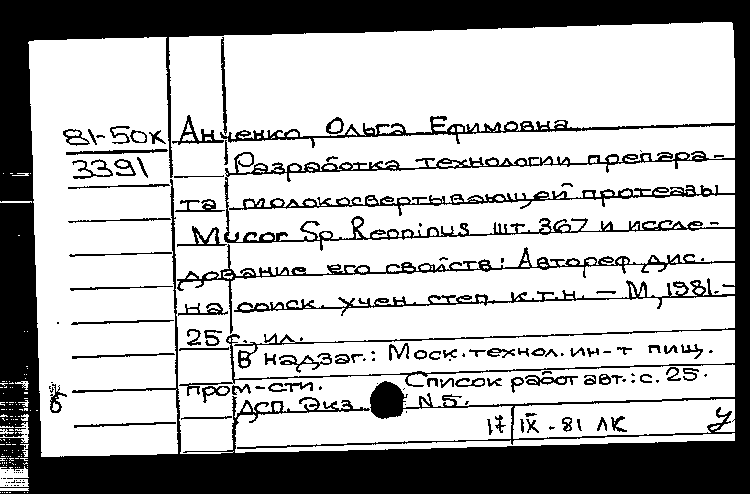 81-50к Анценко, Ольга Ефимовна
3391 Разработка технологии препара-
та молокосвертывающей протеазы
Mucor Sp. Renninus шт. 367 и иссле-
дование его свойств: Автореф. дис.
на соиск. учен. степ. к.т.н. — М., 1981.-
25 с., ил.
В надзаг.: Моск. технол. ин-т пищ.
пром-сти. Список работ авт.: с. 25.
ДСП. Экз. N 5.
17 IX - 81 ЛК У